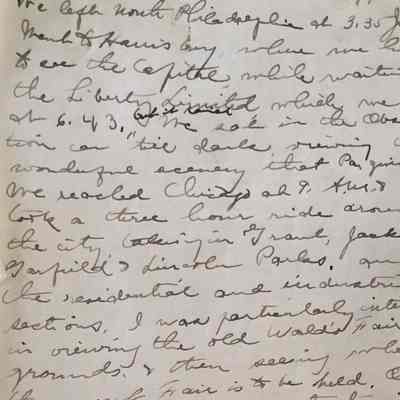 We left North Philadelphia at 3.35
Went to Harrisburg where we
to see the Capitol while
the Liberty Limited which we
at 6.43, We sat in the
tion car 'till dark viewing
wonderful scenery that Pa.
We reached Chicago at 9. A.M. &
took a three hour ride
the city taking in Grant,
Garfield & Lincoln Parks.
the residential and
sections. I was particularly
in viewing the old World's Fair
grounds. & then seeing
Fair is to be held.